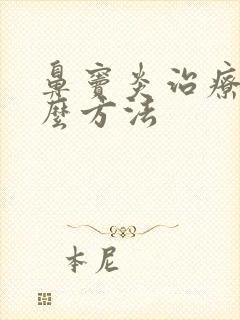 鼻窦炎治療
麼方法
本尼